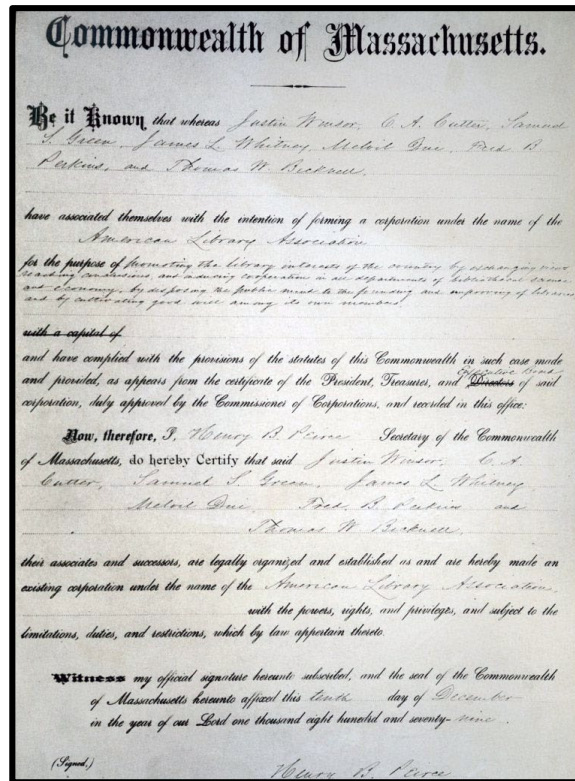 Commonwealth of Massachusetts.
Be it Known that whereas Justin Winsor, C. A. Cutter, Samuel
S. Green, James L. Whitney, Melvil Dui, Fred B
Perkins, and Thomas W. Bicknell,
have associated themselves with the intention of forming a corporation under the name of the
American Library Association
for the purpose of promoting the library interests of the country by exchanging views,
reaching conclusions, and inducing cooperation in all departments of bibliothecal science
and economy; by disposing the public mind to the founding and improving of libraries
and by cultivating good will among its own members,
with a capital of
and have complied with the provisions of the statutes of this Commonwealth in such case made
Executive Board
and provided, as appears from the certificate of the President, Treasurer, and Directors of said
corporation, duly approved by the Commissioner of Corporations, and recorded in this office:
Now, therefore, I, Henry B. Peirce Secretary of the Commonwealth
of Massachusetts, do hereby Certify that said Justin Winsor, C. A.
Cutter, Samuel S. Green, James L. Whitney,
Melvil Dui, Fred. B. Perkins and
Thomas W. Bicknell,
their associates and successors, are legally organized and established as and are hereby made an
existing corporation under the name of the American Library Association,
with the powers, rights, and privileges, and subject to the
limitations, duties, and restrictions, which by law appertain thereto.
Witness my official signature hereunto subscribed, and the seal of the Commonwealth
of Massachusetts hereunto affixed this tenth day of December
in the year of our Lord one thousand eight hundred and seventy-nine.
(Signed.)
Henry B. Peirce